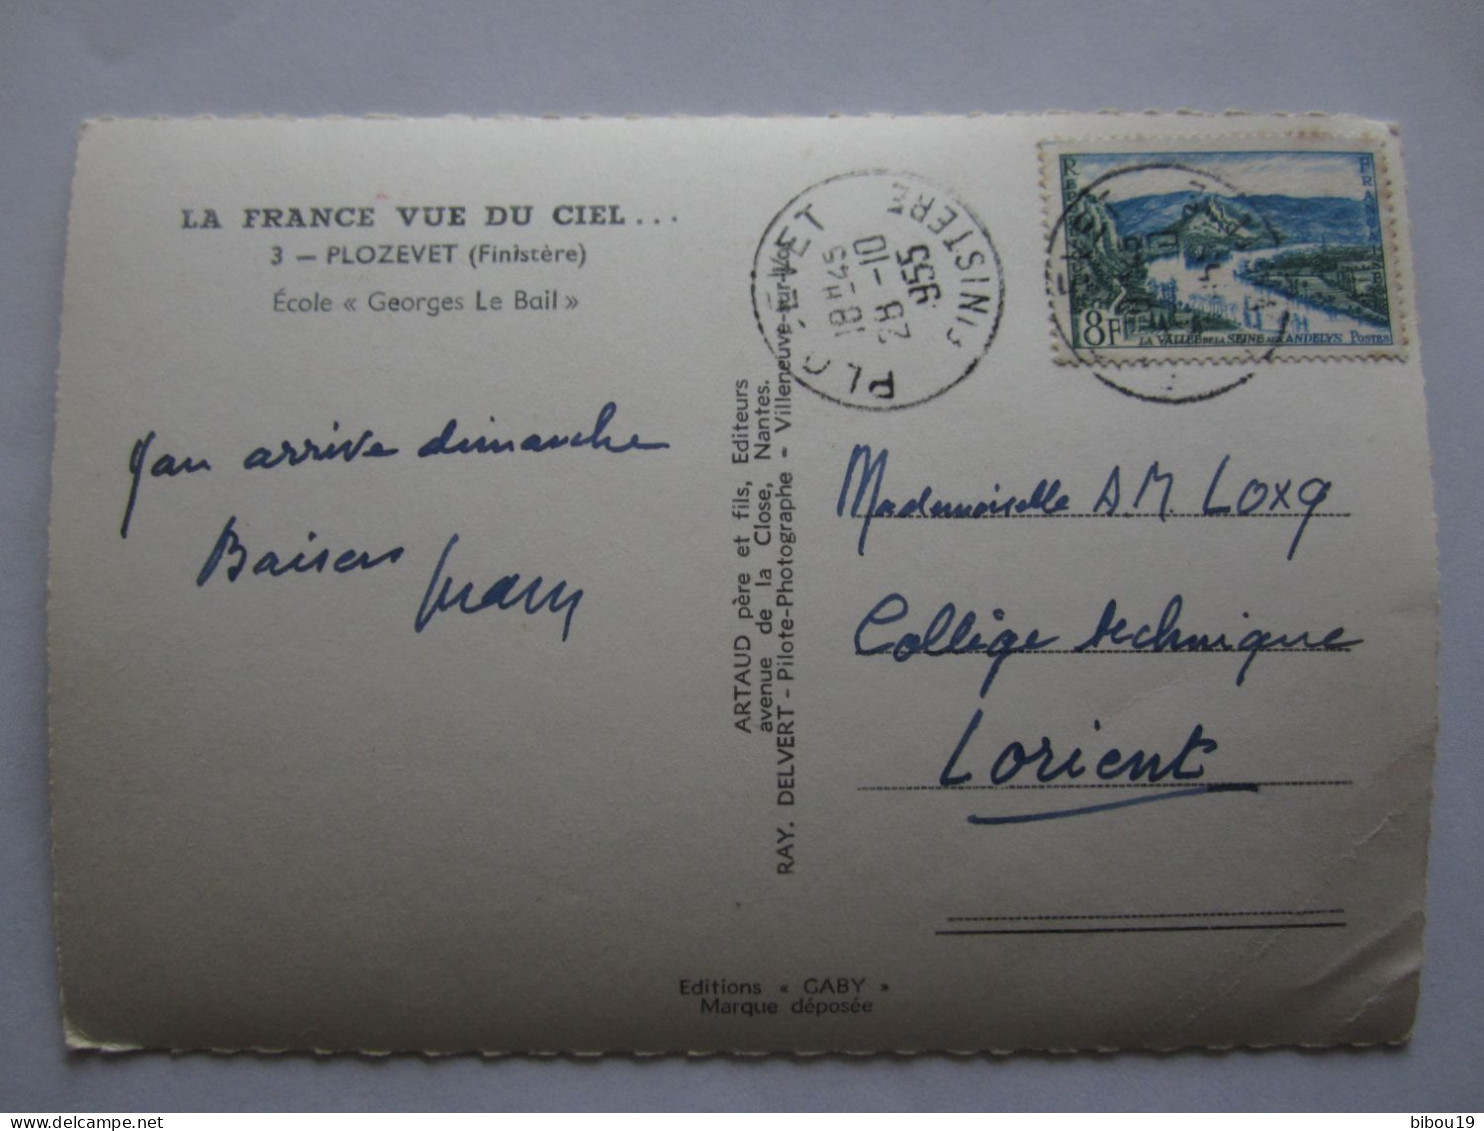 LA FRANCE VUE DU CIEL...
3 — PLOZEVET (Finistère)
École « Georges Le Bail »
arrive dimanche
Baisers
ARTAUD père et fils, Editeurs
avenue de la Close, Nantes.
RAY. DELVERT - Pilote-Photographe - Villeneuve-sur-Lot
PLOZEVET
18H45
28-10
1955
FINISTERE
8F
LA VALLÉE DE LA SEINE AUX ANDELYS POSTES
Mademoiselle A.M. LOXQ
Collège technique
Lorient
Editions « GABY »
Marque déposée
bibou19